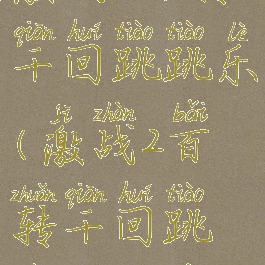 qiān huí tiào tiào lè
千回跳跳乐
jī zhàn bǎi
(激战2百
zhuǎn qiān huí tiào
转千回跳